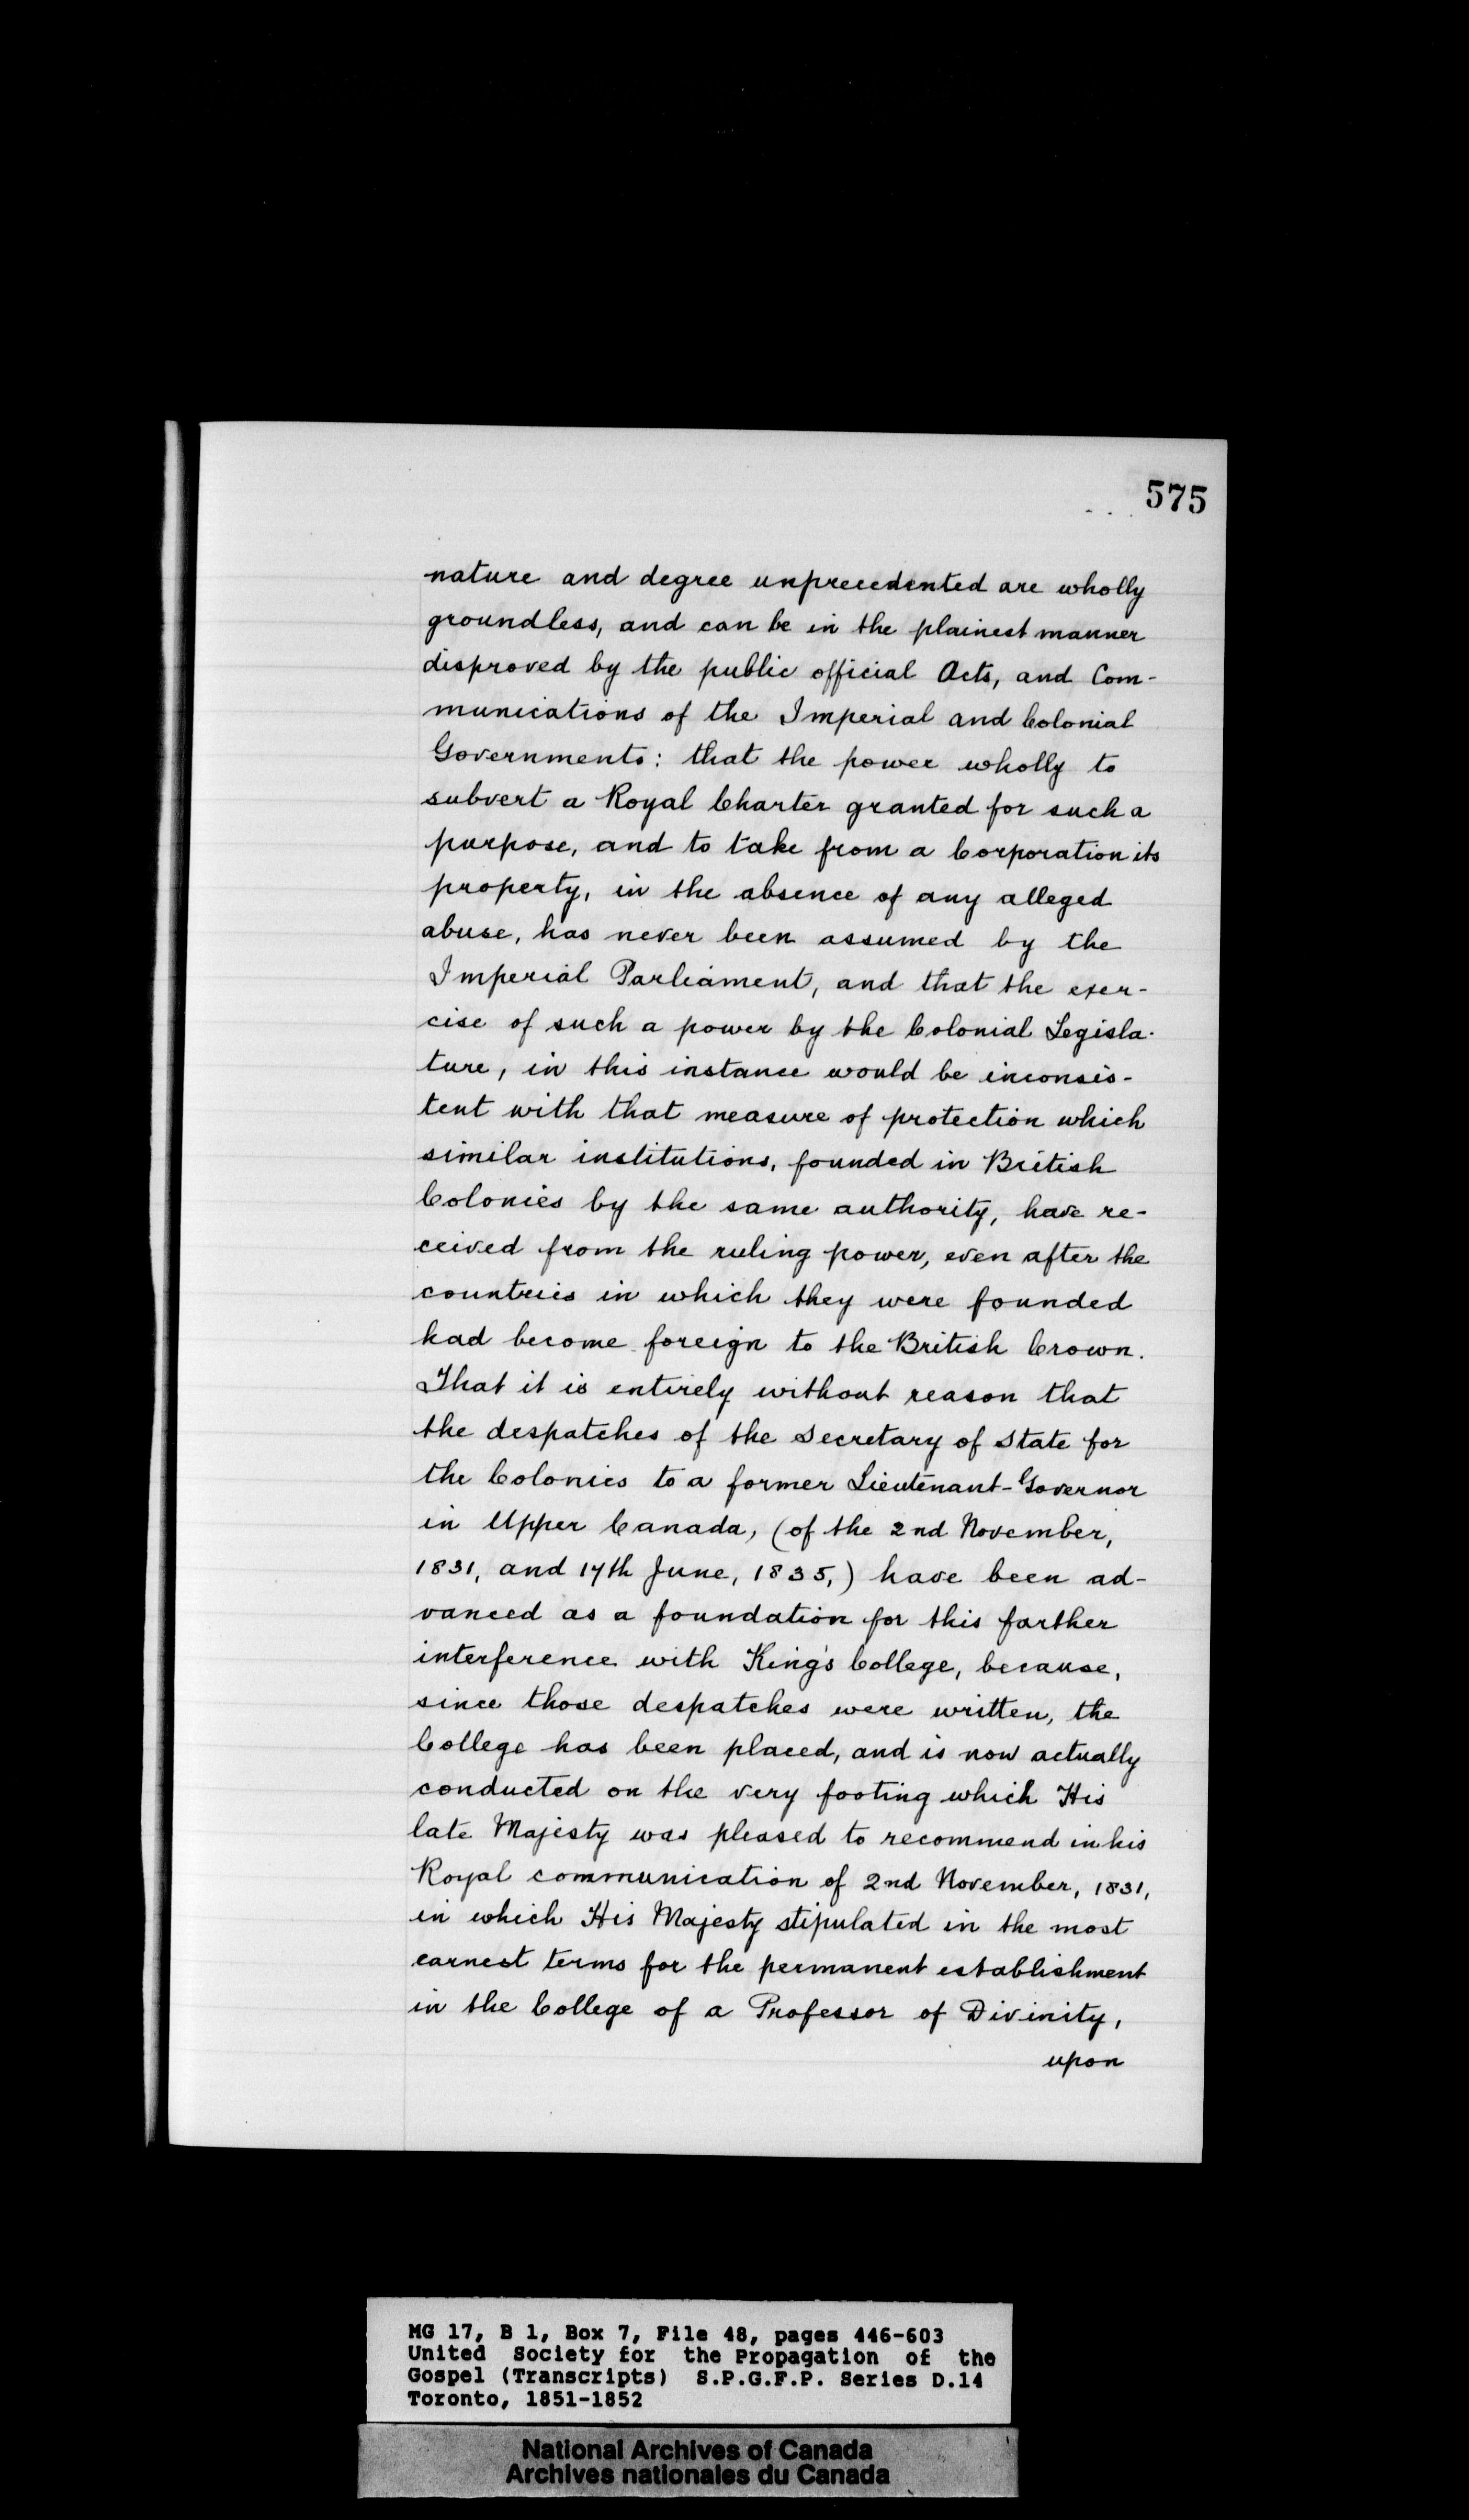 575
nature and degree unprecedented are wholly
groundless, and can be in the plainest manner
disproved by the public official Acts, and Com-
munications of the Imperial and Colonial
Governments: that the power wholly to
subvert a Royal Charter granted for such a
purpose, and to take from a Corporation its
property, in the absence of any alleged
abuse, has never been assumed by the
Imperial Parliament, and that the exer-
cise of such a power by the Colonial Legisla-
ture, in this instance would be inconsis-
tent with that measure of protection which
similar institutions, founded in British
Colonies by the same authority, have re-
ceived from the ruling power, even after the
countries in which they were founded
had become foreign to the British Crown.
That it is entirely without reason that
the despatches of the Secretary of State for
the Colonies to a former Lieutenant-Governor
in Upper Canada, (of the 2nd November,
1831, and 17th June, 1835,) have been ad-
vanced as a foundation for this farther
interference with King's College, because,
since those despatches were written, the
College has been placed, and is now actually
conducted on the very footing which His
late Majesty was pleased to recommend in his
Royal communication of 2nd November, 1831,
in which His Majesty stipulated in the most
earnest terms for the permanent establishment
in the College of a Professor of Divinity,
upon
MG 17, B 1, Box 7, File 48, pages 446-603
United Society for the Propagation of the
Gospel (Transcripts) S.P.G.F.P. Series D.14
Toronto, 1851-1852
National Archives of Canada
Archives nationales du Canada